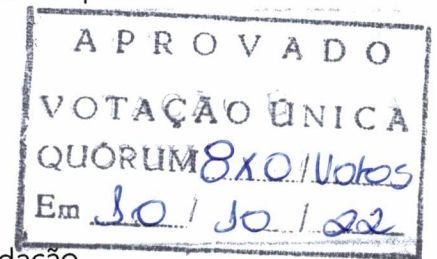 APROVADO
VOTAÇÃO ÚNICA
QUÓRUM 8x0 / Votos
Em 10 / 10 / 22